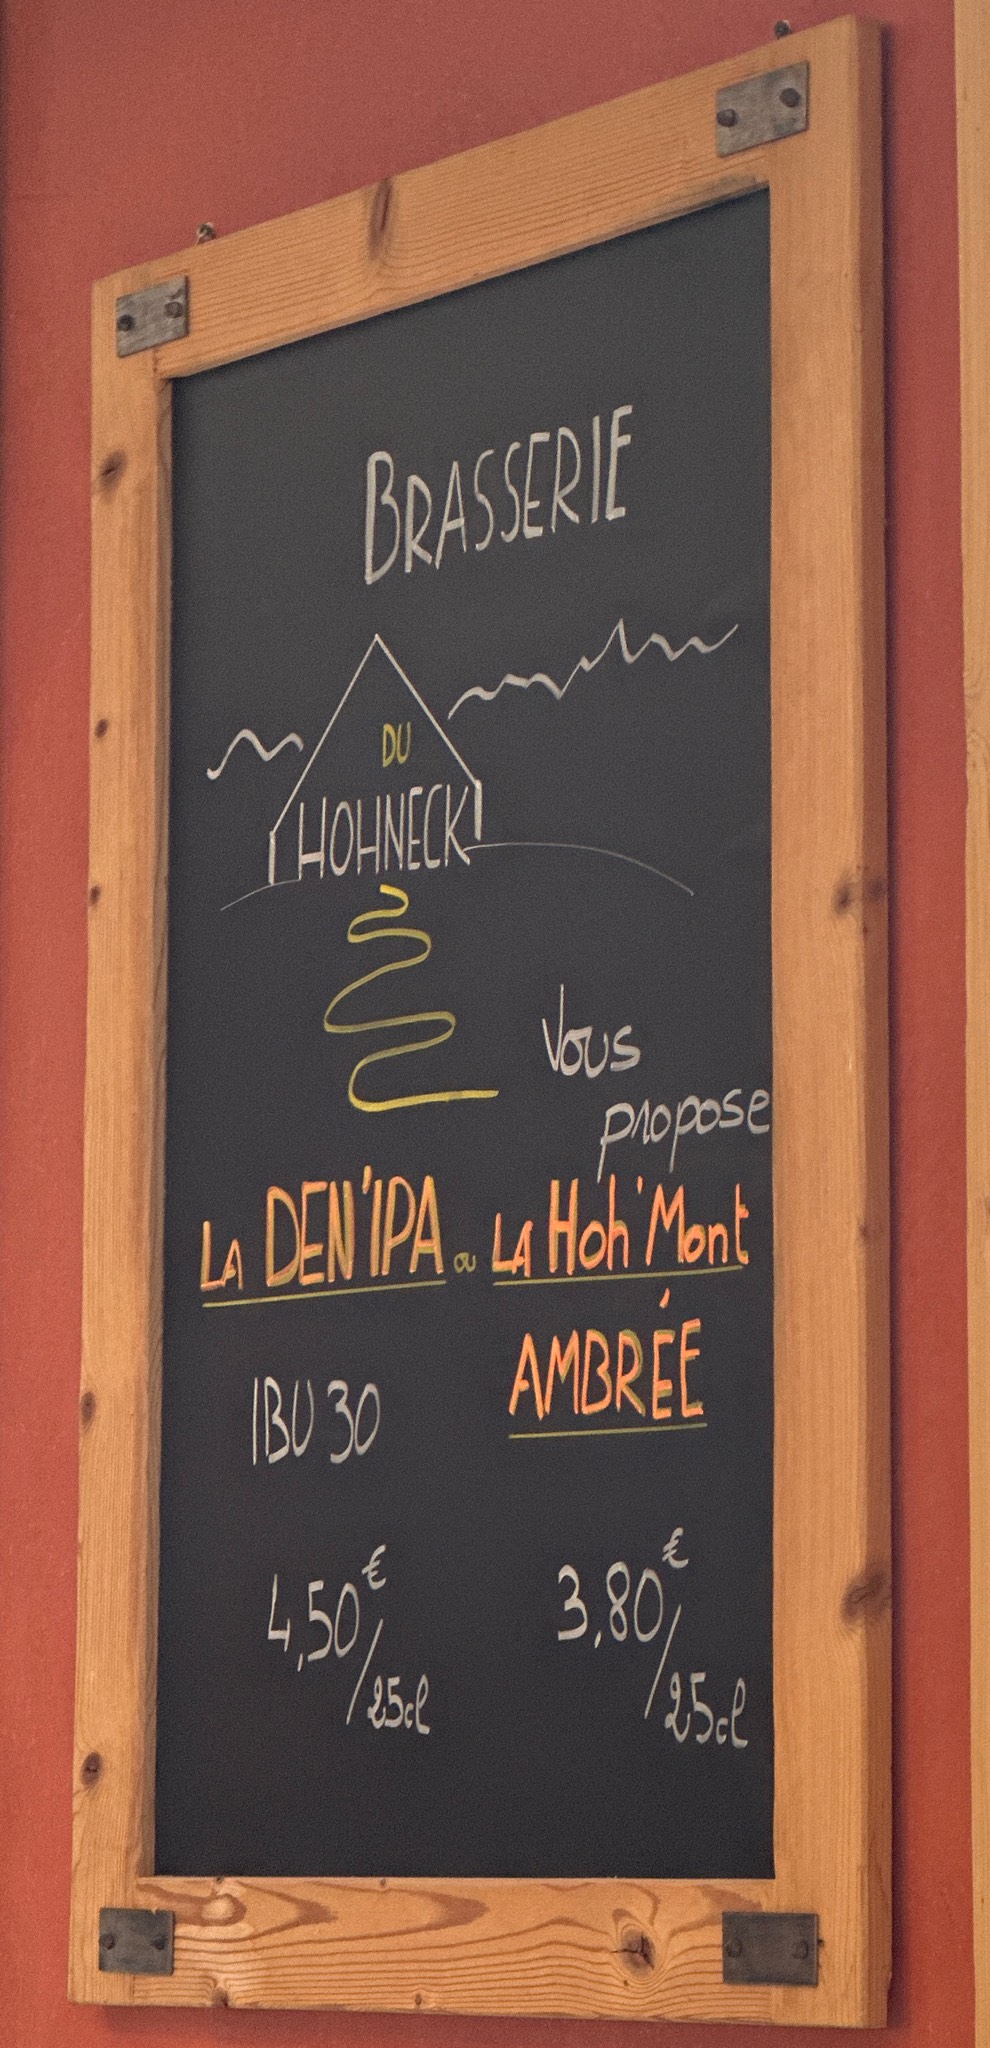 BRASSERIE
DU
HOHNECK
Vous
propose
LA DEN'IPA ou LA Hoh'Mont
AMBRÉE
IBU 30
4,50€/25cl 3,80€/25cl